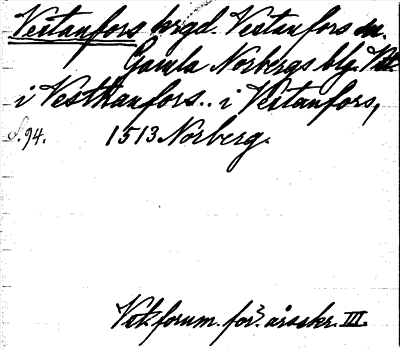 Vestanfors brgd. Vestanfors sn.
Gamla Norbergs blg. Vstl.
i Vesthanfors.. i Vestanfors,
S. 94. 1513 Norberg.
Vtkforum. för:s årsskr. III.